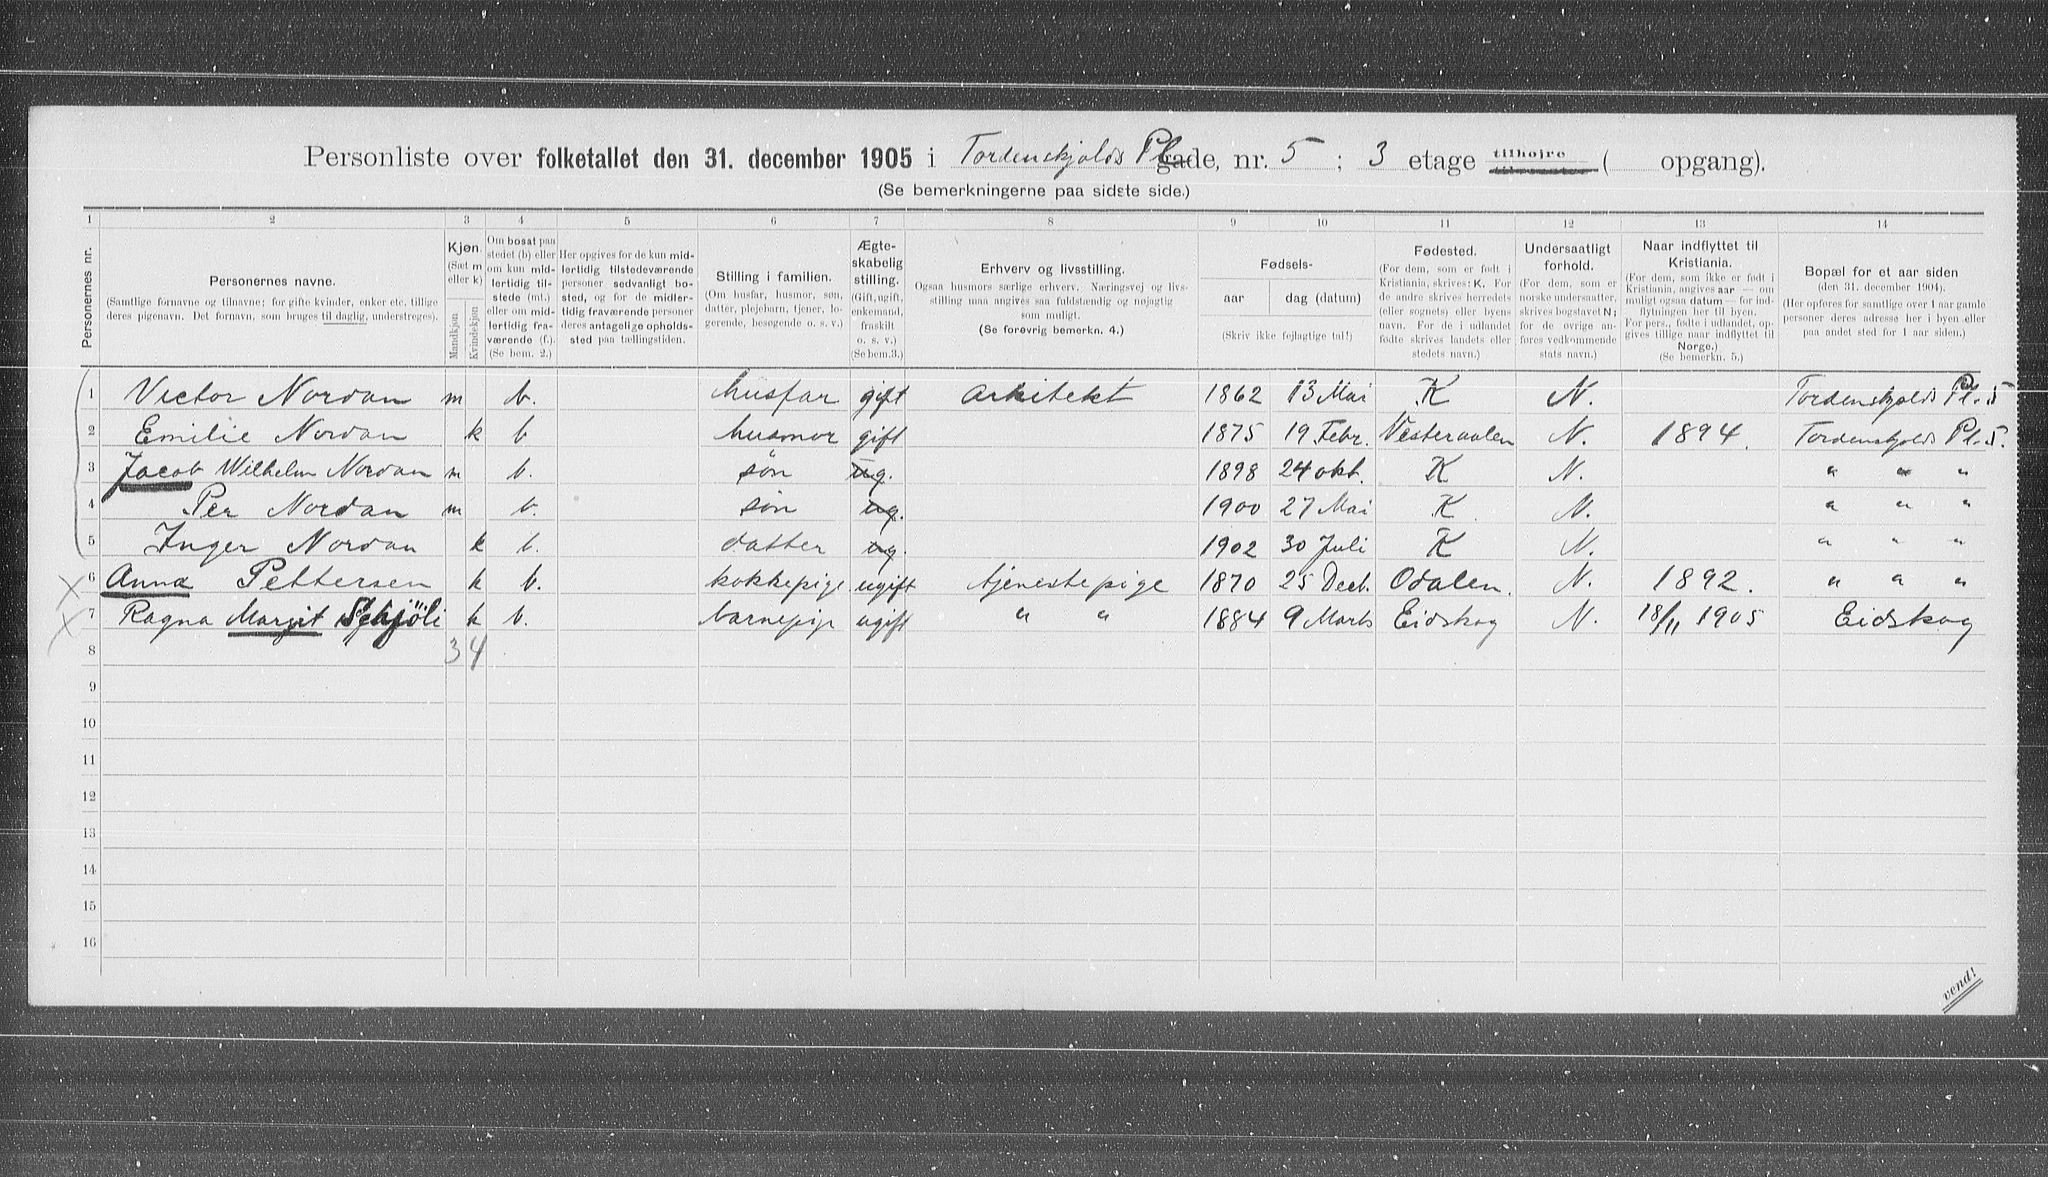 Personliste over folketallet den 31. december 1905 i Tordenskjolds Pl. gade, nr. 5 ; 3 etage tilhøjre ( opgang).
(Se bemerkningerne paa sidste side.)
1 2 3 4 5 6 7 8 9 10 11 12 13 14
Personernes nr.
Personernes navne.
(Samtlige fornavne og tilnavne; for gifte kvinder, enker etc. tillige
deres pigenavn. Det fornavn, som bruges til daglig, understreges).
Kjøn.
(Sæt m
eller k)
Mandkjøn
Kvindekjøn
Om bosat paa
stedet (b) eller
om kun mid-
lertidig til-
stede (mt.)
eller om mid-
lertidig fra-
værende (f.).
(Se bem. 2.)
Her opgives for de kun mid-
lertidig tilstedeværende
personer sedvanligt bo-
sted, og for de midler-
tidig fraværende personer
deres antagelige opholds-
sted paa tællingstiden.
Stilling i familien.
(Om husfar, husmor, søn,
datter, plejebarn, tjener, lo-
gerende, besøgende o. s. v.)
Ægte-
skabelig
stilling.
(Gift, ugift,
enkemand,
fraskilt
o. s. v.)
(Se bem.3.)
Erhverv og livsstilling.
Ogsaa husmors særlige erhverv. Næringsvej og livs-
stilling maa angives saa fuldstændig og nøjagtig
som muligt.
(Se forøvrig bemerkn. 4.)
Fødsels-
aar
dag (datum)
(Skriv ikke fejlagtige tal!)
Fødested.
(For dem, som er født i
Kristiania, skrives: K. For
de andre skrives herredets
(eller sognets) eller byens
navn. For de i udlandet
fødte skrives landets eller
stedets navn.)
Undersaatligt
forhold.
(For dem, som er
norske undersaatter,
skrives bogstavet N;
for de øvrige an-
føres vedkommende
stats navn.)
Naar indflyttet til
Kristiania.
(For dem, som ikke er født i
Kristiania, angives aar — om
muligt ogsaa datum — for ind-
flytningen her til byen.
For pers., fødte i udlandet, op-
gives tillige naar indflyttet til
Norge.)
(Se bemerkn. 5.)
Bopæl for et aar siden
(den 31. december 1904).
(Her opføres for samtlige over 1 aar gamle
personer deres adresse her i byen eller
paa andet sted for 1 aar siden.)
1 Victor Nordan m b. husfar gift arkitekt 1862 13 Mai K N. Tordenskjolds Pl. 5
2 Emilie Nordan k b husmor gift 1875 19 Febr. Vesteraalen N. 1894. Tordenskjolds Pl. 5.
3 Jacob Wilhelm Nordan m b. søn ug. 1898 24 okt. K N. " " "
4 Per Nordan m b. søn ug. 1900 27 Mai K N. " " "
5 Inger Nordan k b. datter ug. 1902 30 Juli K N. " " "
6 Anna Pettersen k b. kokkepige ugift tjenestepige 1870 25 Decb. Odalen. N. 1892. " " "
7 Ragna Margit Schjöli k b. barnepige ugift " " 1884 9 Marts Eidskog N. 18/11 1905 Eidskog
8 3 4
9
10
11
12
13
14
15
16
vend!